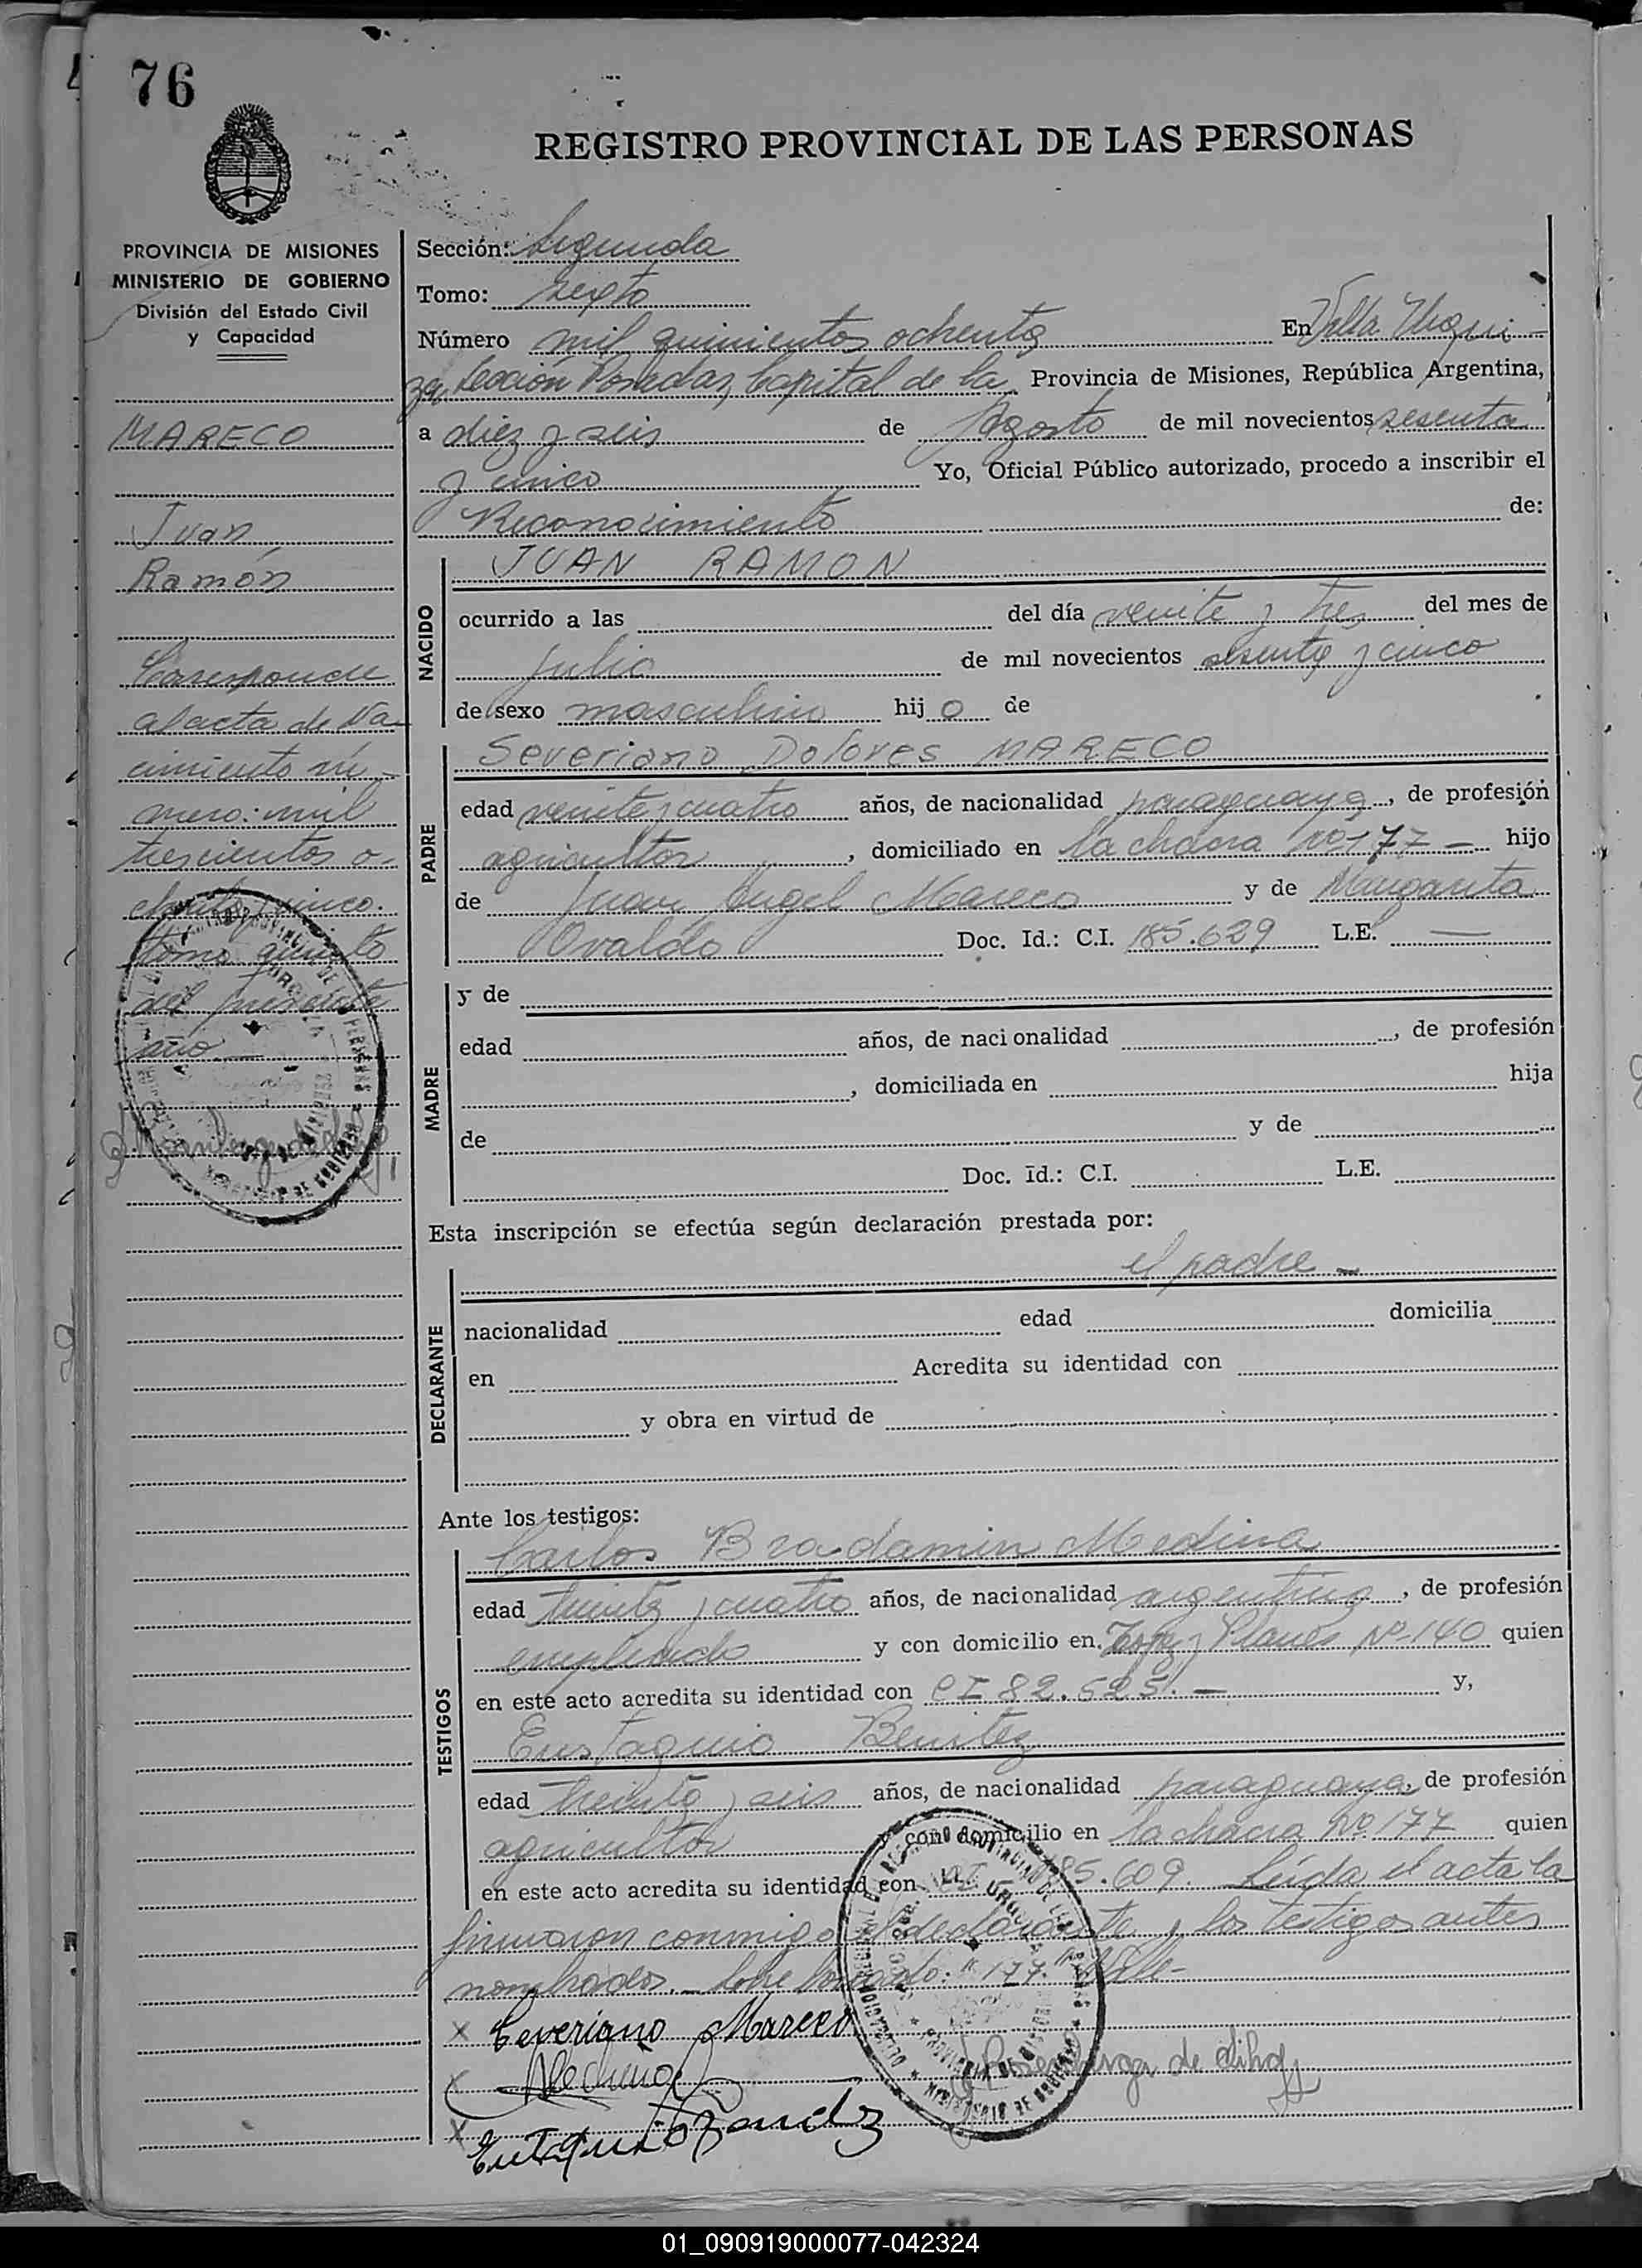 76
REGISTRO PROVINCIAL DE LAS PERSONAS
PROVINCIA DE MISIONES
MINISTERIO DE GOBIERNO
División del Estado Civil
y Capacidad
MARECO
Juan
Ramón
Corresponde
al acta de Na-
cimiento nú-
mero: mil
trescientos o-
chenta y cinco.
tomo quinto
del presente
año.—
Sección: Segunda
Tomo: sexto
Número mil quinientos ochenta En Villa Urqui-
za, Sección Posadas, Capital de la Provincia de Misiones, República Argentina,
a diez y seis de Agosto de mil novecientos sesenta
y cinco Yo, Oficial Público autorizado, procedo a inscribir el
Reconocimiento de:
NACIDO
JUAN RAMON
ocurrido a las del día veinte y tres del mes de
julio de mil novecientos sesenta y cinco
de sexo masculino hijo de
PADRE
Severiano Dolores MARECO
edad veinte y cuatro años, de nacionalidad paraguaya, de profesión
agricultor, domiciliado en la chacra Nº 177 — hijo
de Juan Angel Mareco y de Margarita
Ovaldo Doc. Id.: C.I. 185.629 L.E. —
MADRE
y de
edad años, de nacionalidad , de profesión
, domiciliada en hija
de y de
Doc. Id.: C.I. L.E.
Esta inscripción se efectúa según declaración prestada por:
el padre —
DECLARANTE
nacionalidad edad domicilia
en Acredita su identidad con
y obra en virtud de
Ante los testigos:
TESTIGOS
Carlos Bradamin Medina
edad treinta y cuatro años, de nacionalidad argentina, de profesión
empleado y con domicilio en López y Planes Nº 140 quien
en este acto acredita su identidad con CI 82.525. — y,
Eustaquio Benitez
edad treinta y seis años, de nacionalidad paraguaya, de profesión
agricultor y con domicilio en la chacra Nº 177 quien
en este acto acredita su identidad con CI 185.609. Leída el acta la
firmaron conmigo el declarante y los testigos antes
nombrados. — Sobre borrado: "177" Vale-
x Ceveriano Mareco
x Medina
x
01_090919000077-042324